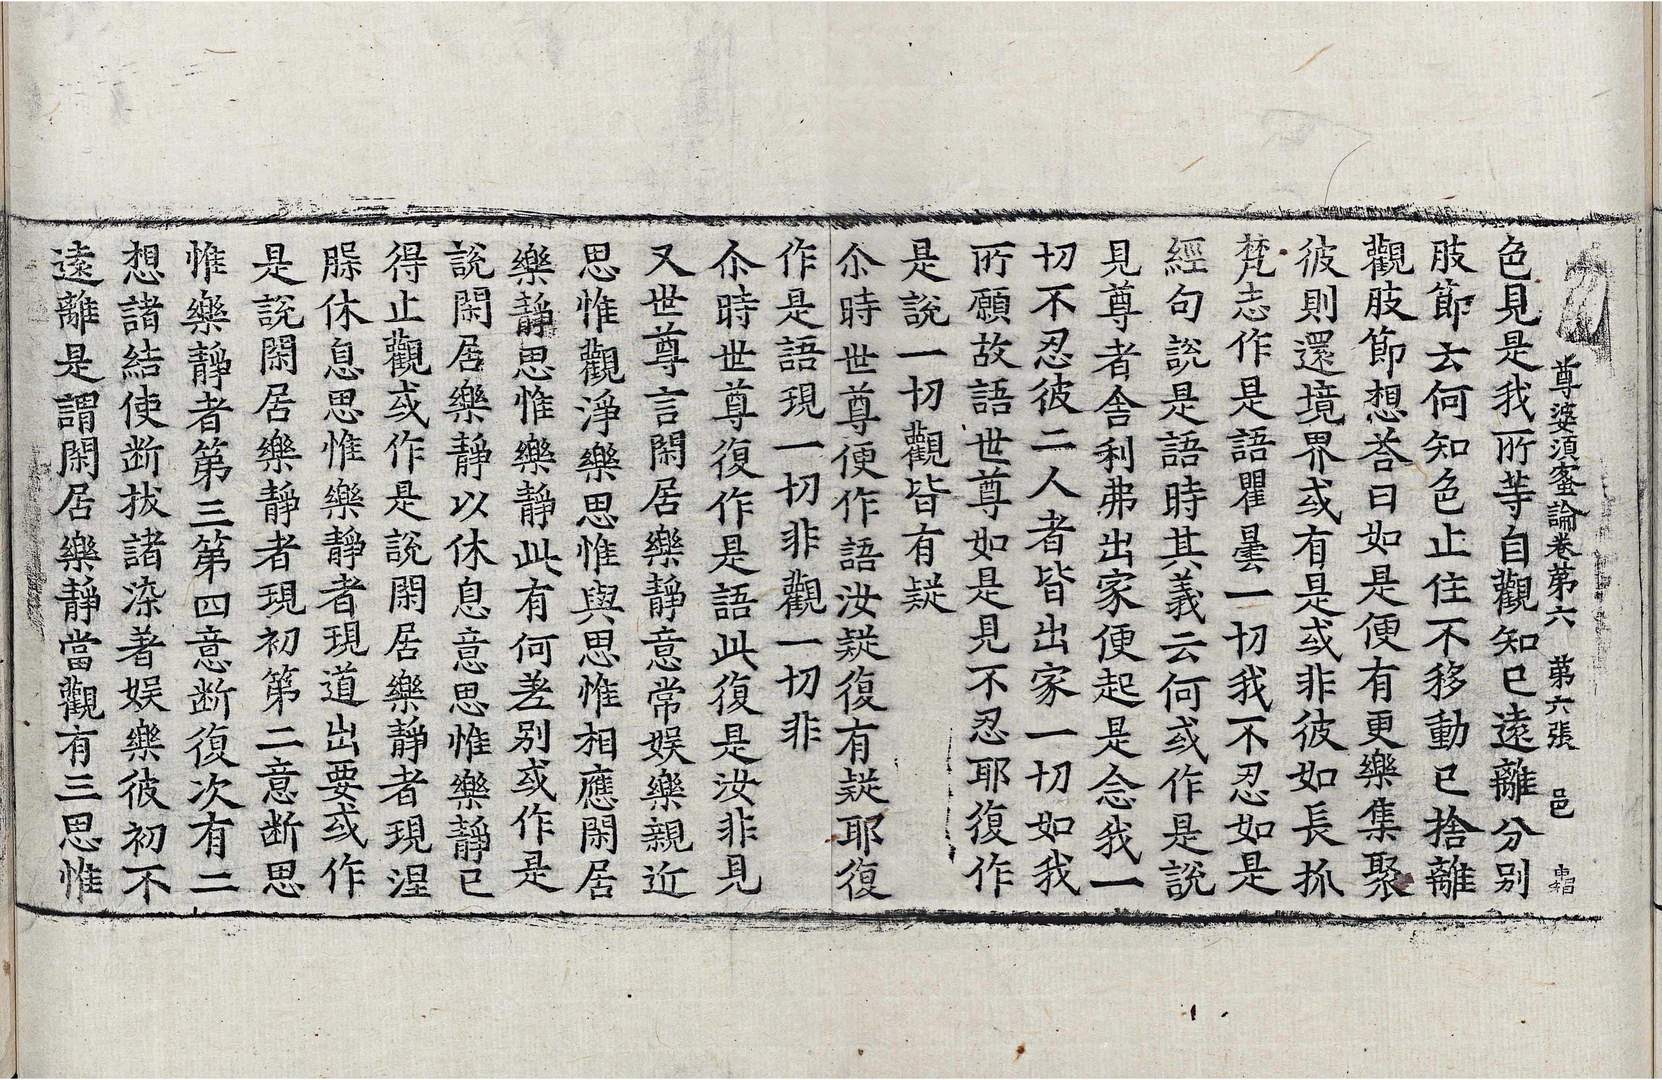 尊婆須蜜論卷第六　第六張　邑
色見是我所等自觀知已遠離分別
肢節云何知色止住不移動已捨離
觀肢節想荅曰如是便有更樂集聚
彼則還境界或有是或非彼如長抓
梵志作是語瞿曇一切我不忍如是
經句說是語時其義云何或作是說
見尊者舍利弗出家便起是念我一
切不忍彼二人者皆出家一切如我
所願故語世尊如是見不忍耶復作
是說一切觀皆有疑
尒時世尊便作語汝疑復有疑耶復
作是語現一切非觀一切非
尒時世尊復作是語此復是汝非見
又世尊言閑居樂靜意常娛樂親近
思惟觀淨樂思惟與思惟相應閑居
樂靜思惟樂靜此有何差別或作是
說閑居樂靜以休息意思惟樂靜已
得止觀或作是說閑居樂靜者現涅
腬休息思惟樂靜者現道出要或作
是說閑居樂靜者現初第二意断思
惟樂靜者第三第四意断復次有二
想諸結使断拔諸染著娛樂彼初不
遠離是謂閑居樂靜當觀有三思惟